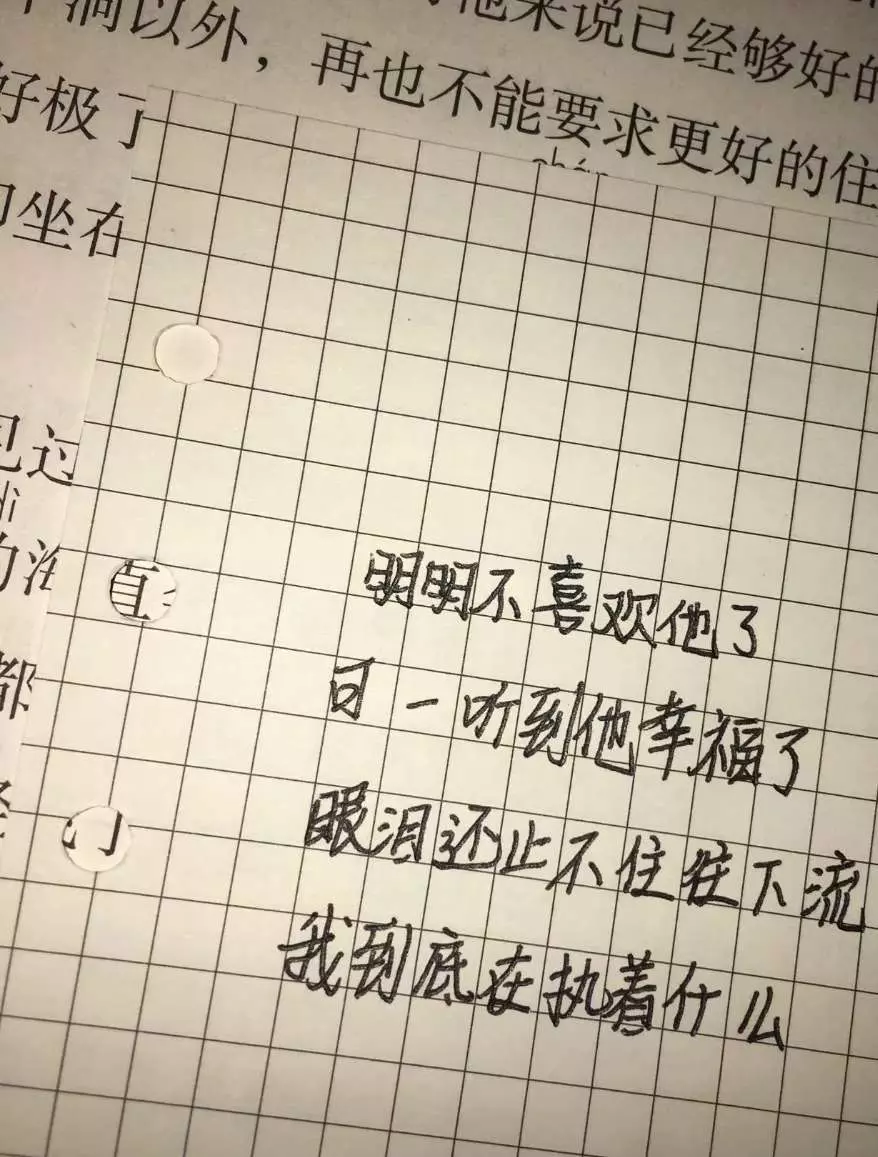 他来说已经够好的
以外，再也不能要求更好的住
好极了
坐在
明明不喜欢他了
可一听到他幸福了
眼泪还止不住往下流
我到底在执着什么
都